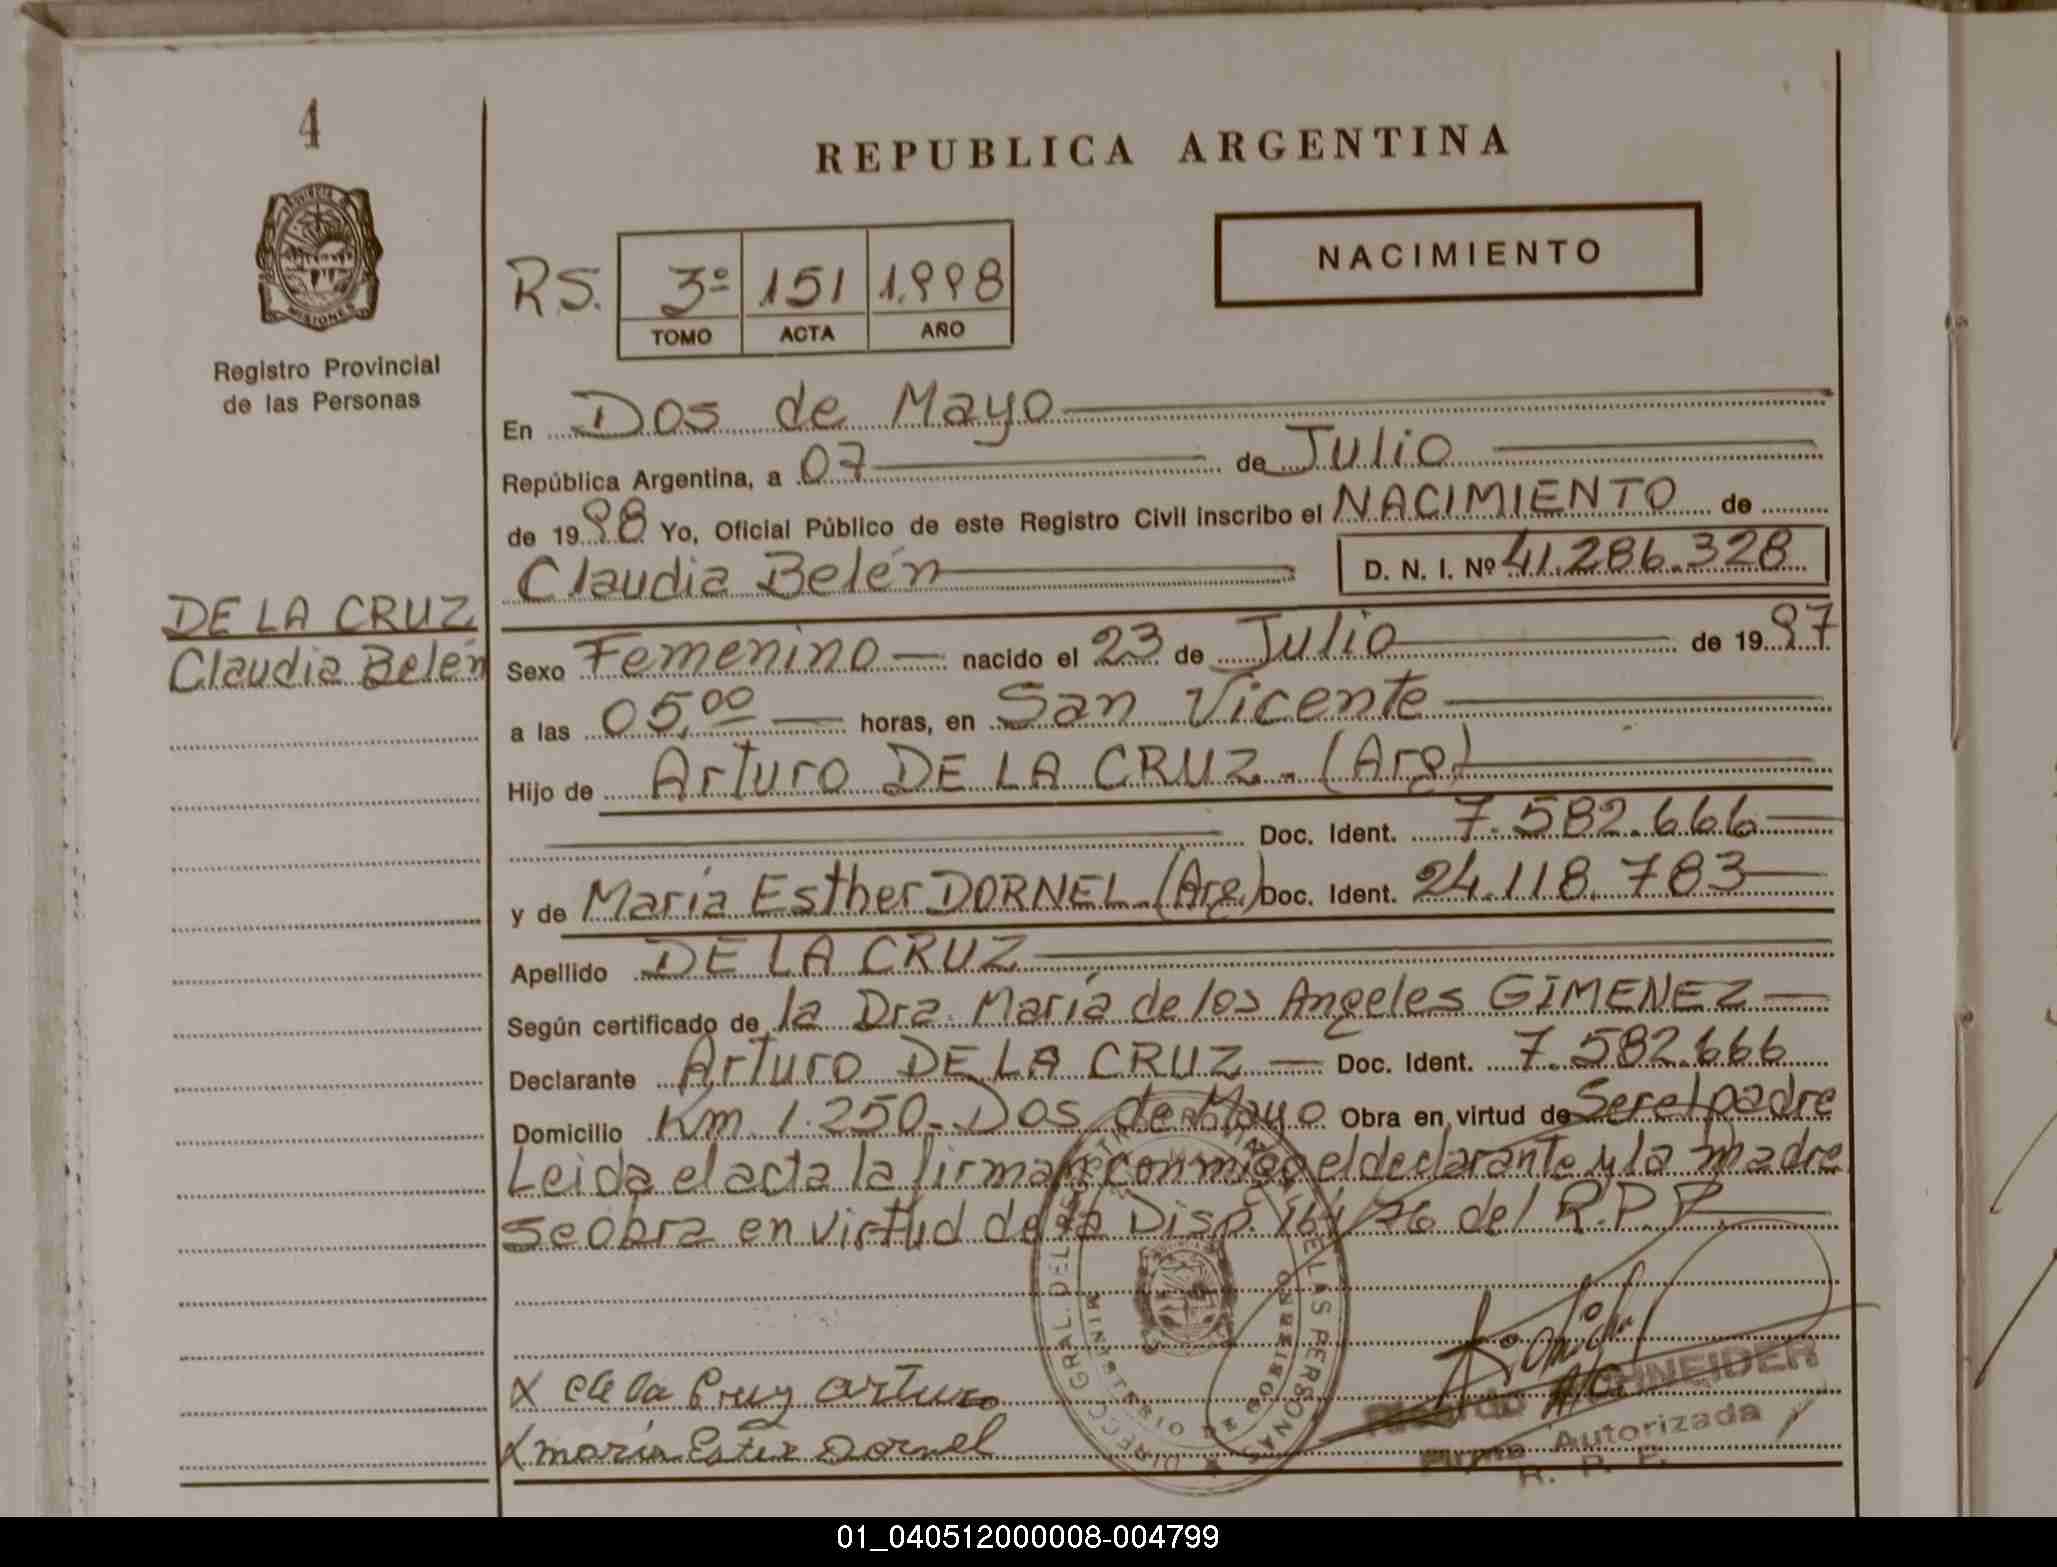 4
REPUBLICA ARGENTINA
PROVINCIA DE
MISIONES
Registro Provincial
de las Personas
NACIMIENTO
RS. 3º 151 1.998
TOMO ACTA AÑO
En Dos de Mayo
República Argentina, a 07 de Julio
de 1998 Yo, Oficial Público de este Registro Civil inscribo el NACIMIENTO de
Claudia Belén D. N. I. Nº 41.286.328
DE LA CRUZ
Claudia Belén
Sexo Femenino nacido el 23 de Julio de 1997
a las 05,00 horas, en San Vicente
Hijo de Arturo DE LA CRUZ. (Arg)
Doc. Ident. 7.582.666
y de María Esther DORNEL. (Arg.) Doc. Ident. 24.118.783
Apellido DE LA CRUZ
Según certificado de la Dra. María de los Angeles GIMENEZ
Declarante Arturo DE LA CRUZ Doc. Ident. 7.582.666
Domicilio Km. 1.250. Dos de Mayo Obra en virtud de Ser el padre
Leida el acta la firman conmigo el declarante y la madre
se obra en virtud de la Disp. 164/76 del R.P.P.
DE LAS PERSONAS
MINISTERIO DE GOBIERNO
x de la Cruz arturo
x maria Ester Dornel
Ricardo SCHNEIDER
Firma Autorizada
R. P. P.
01_040512000008-004799